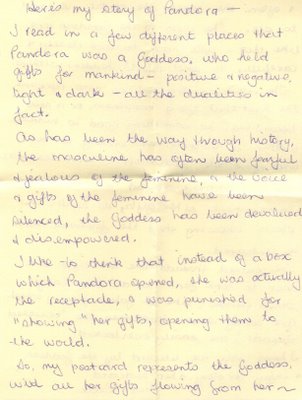 Here's my story of Pandora —
I read in a few different places that
Pandora was a Goddess, who held
gifts for mankind - positive & negative,
light & dark - all the dualities in
fact.
As has been the way through history,
the masculine has often been fearful
& jealous of the feminine, & the voice
& gifts of the feminine have been
silenced, the Goddess has been devalued
& disempowered.
I like to think that instead of a box
which Pandora opened, she was actually
the receptacle, & was punished for
"showing" her gifts, opening them to
the world.
So, my postcard represents the Goddess,
with all her gifts flowing from her ~